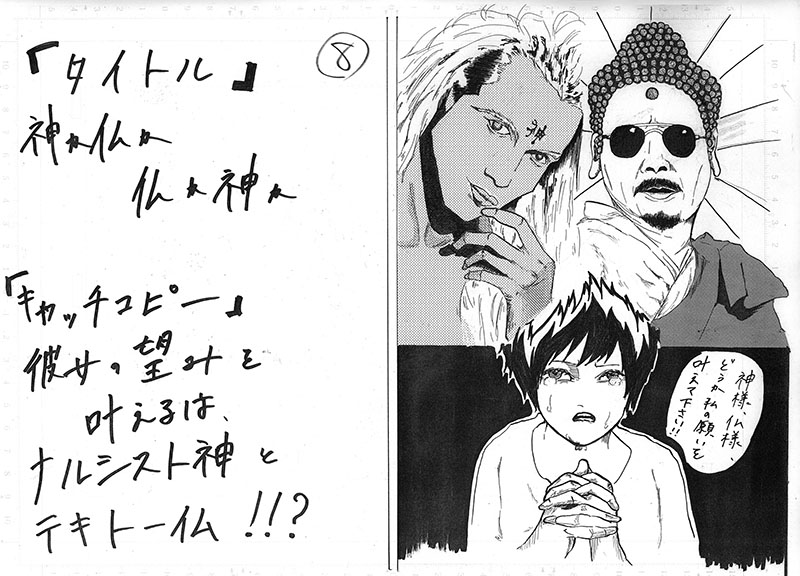 ⑧
『タイトル』
神か仏か
仏か神か
『キャッチコピー』
彼女の望みを
叶えるは、
ナルシスト神と
テキトー仏!!?
神
神様、仏様、
どうか私の願いを
叶えて下さい!!